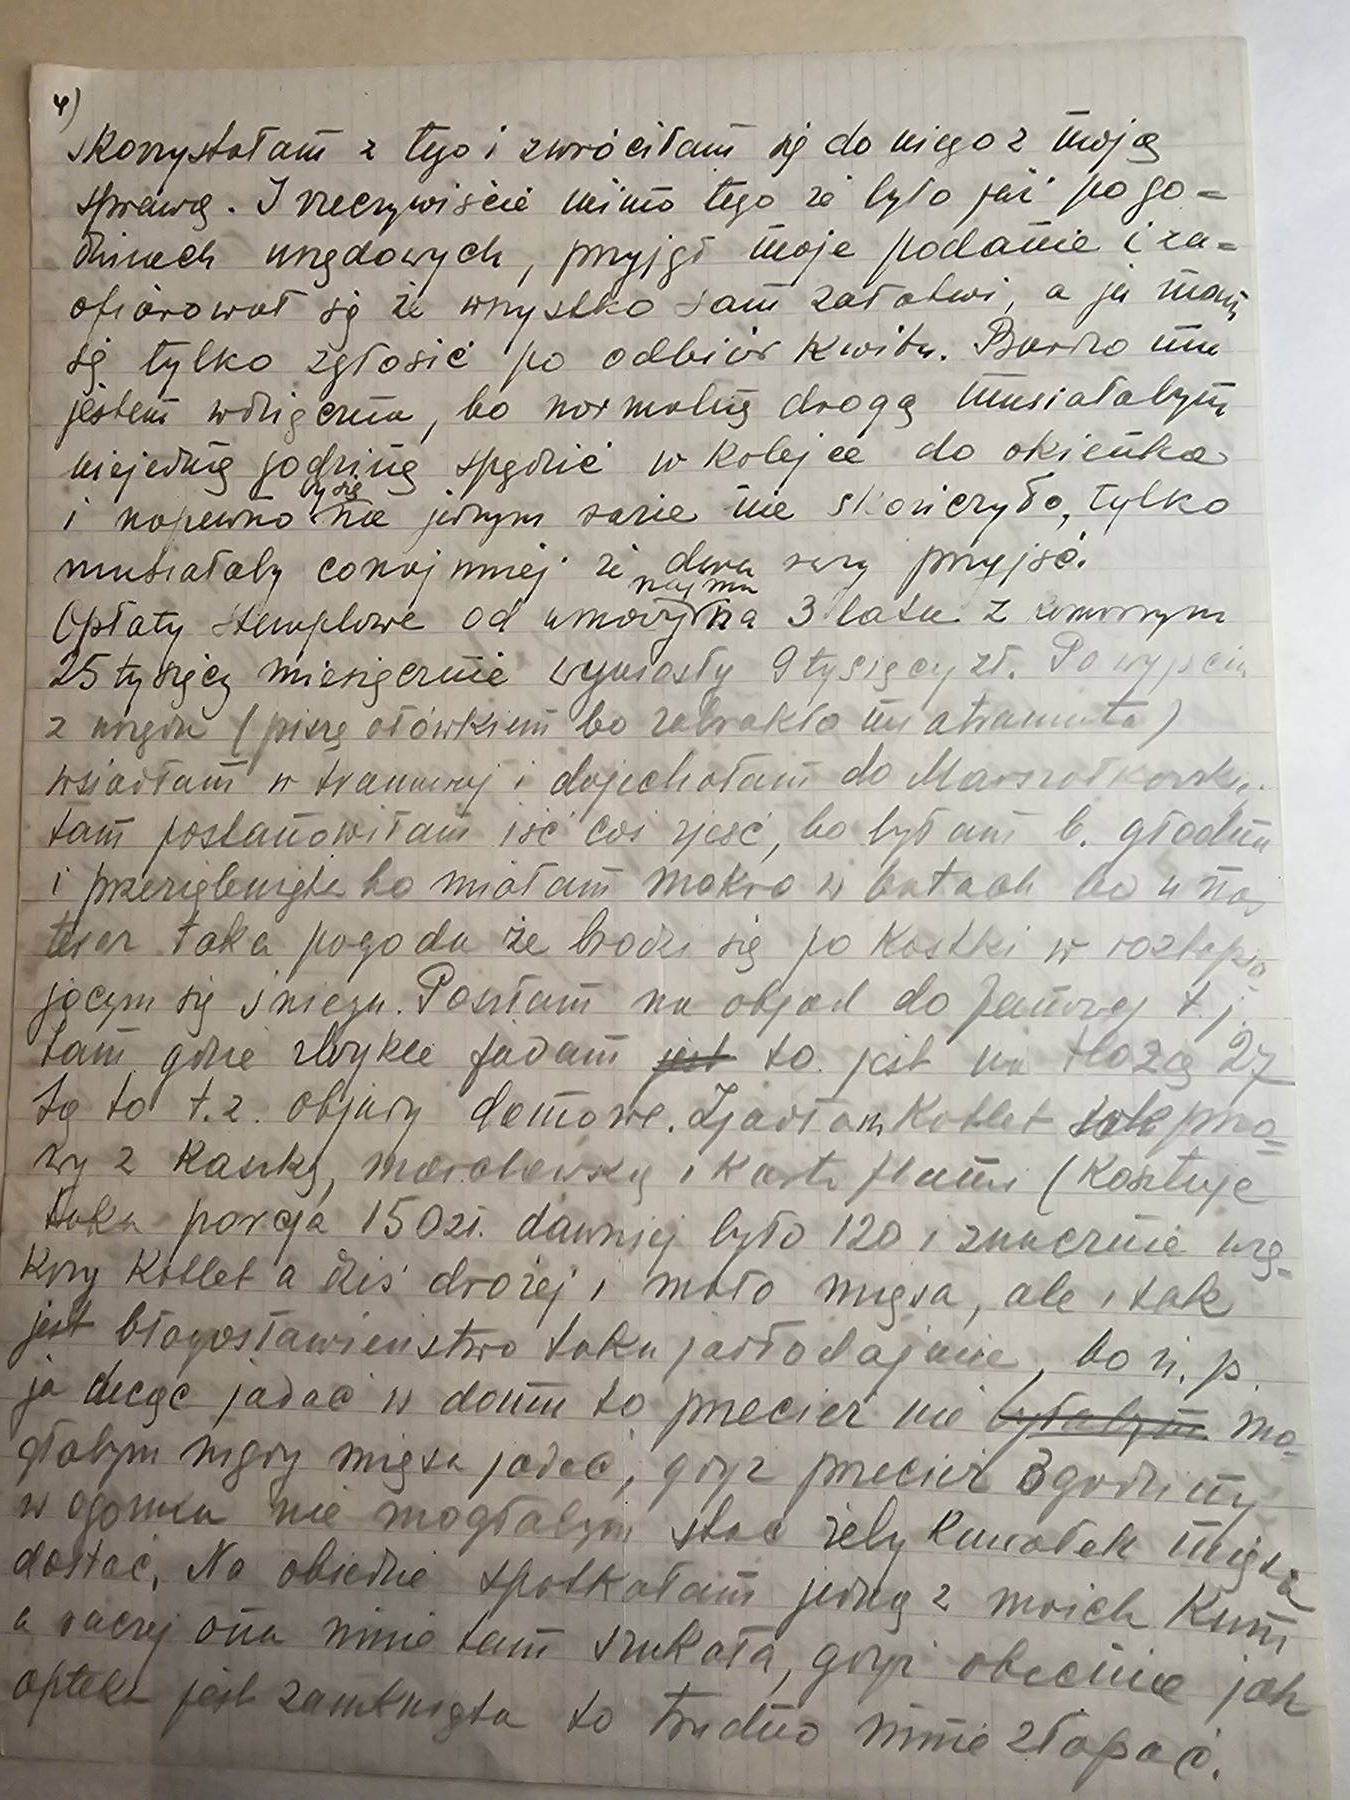 4)
skorzystałam z tego i zwróciłam się do niego z moją
sprawą. I rzeczywiście mimo tego że było już po go=
dzinach urzędowych, przyjął moje podanie i za=
ofiarował się że wszystko sam załatwi, a ja mam
się tylko zgłosić po odbiór kwitu. Bardzo mu
jestem wdzięczna, bo normalną drogą musiałabym
niejedną godzinę spędzić w kolejce do okienka
i napewno by się na jednym razie nie skończyło, tylko
musiałaby conajmniej ze dwa razy przyjść.
Opłaty stemplowe od umowy najmu na 3 lata z komornym
25 tysięcy miesięcznie wyniosły 9 tysięcy zł. Po wyjściu
z urzędu (piszę ołówkiem bo zabrakło mi atramentu)
wsiadłam w tramwaj i dojechałam do Marszałkowski.
tam postanowiłam iść coś zjeść, bo byłam b. głodna
i przeziębnięta bo miałam mokro w butach bo u nas
teraz taka pogoda że brodzi się po kostki w roztapia
jącym się śniegu. Poszłam na objad do t.j.
tam gdzie zwykle jadam jest to jest na Hożą 27
Są to t.z. objady domowe. Zjadłam kotlet
z kaszką, marchewską i kartoflami (kosztuje
taka porcja 150 zł. dawniej było 120 i znacznie wię=
kszy kotlet a dziś drożej i mało mięsa, ale i tak
jest błogosławieństwo taka jadłodajnia, bo n.p.
ja chcąc jadać w domu to przecież nie byłabym mo=
głabym nigdy mięsa jadać, gdyż przecież 3 godziny
w ogonku nie mogłabym stać żeby kawałek mięsa
dostać. Na obiedzie spotkałam jedną z moich kum
a raczej ona mnie tam szukała, gdyż obecnie jak
apteka jest zamknięta to trudno mnie złapać.